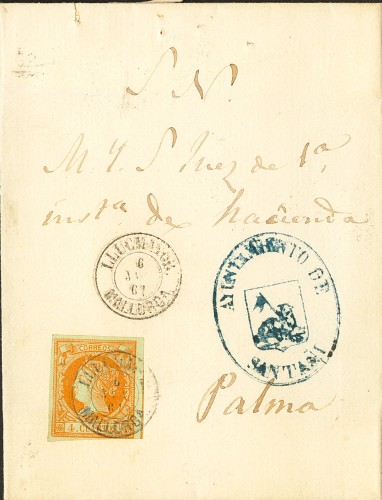 S. N.
M. Y. S. Juez de 1ª
instª de hacienda
LLUCMAYOR
6
61
MALLORCA
AYUNTAMIENTO DE
SANTAÑI
CORREOS
4 CU
LLUCMAYOR
MALLORCA
Palma